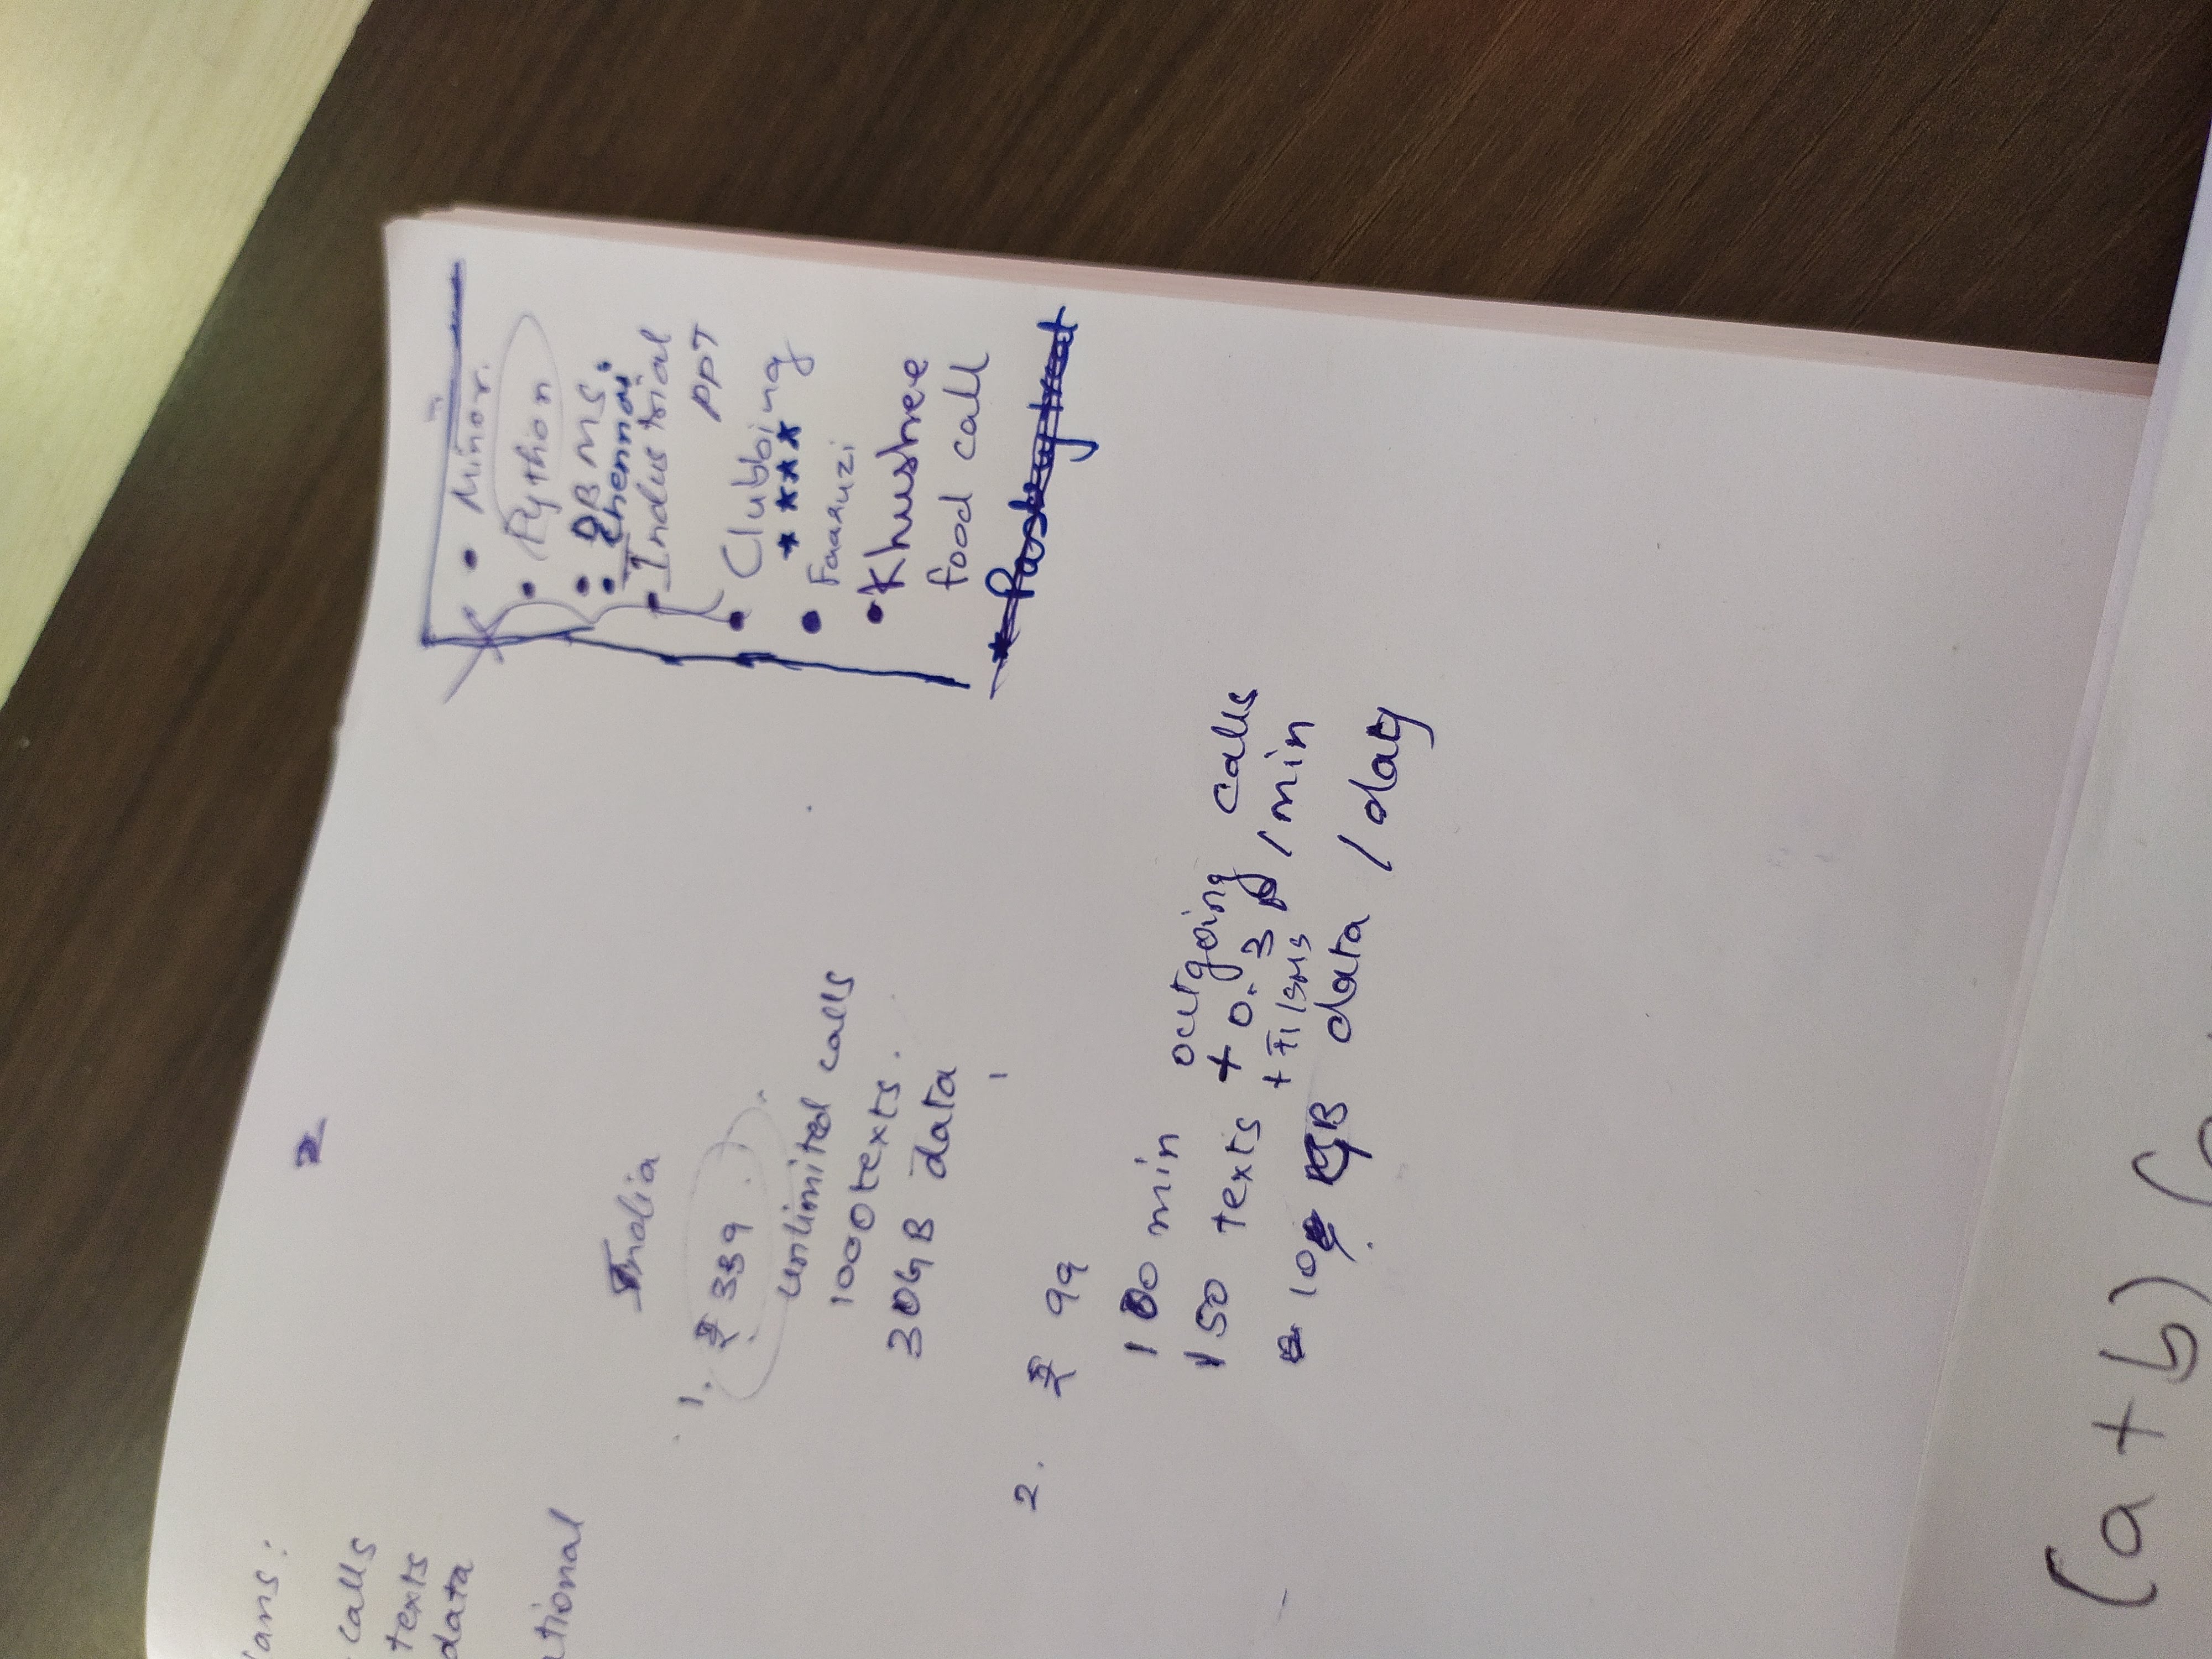 ans:
calls
texts
data
tional
2
India
1. ₹ 339
unlimited calls
1000 texts.
30GB data
2. ₹ 99
100 min outgoing calls
+ 0.3 p/min
150 texts
+ ₹1/SMS
GB data / day
• Minor.
• Python
• DBMS.
• Chennai
• Industrial
PPT
• Clubbing
• Faaruzi
• Khushee
food call
Pastry treat
(a+b) (